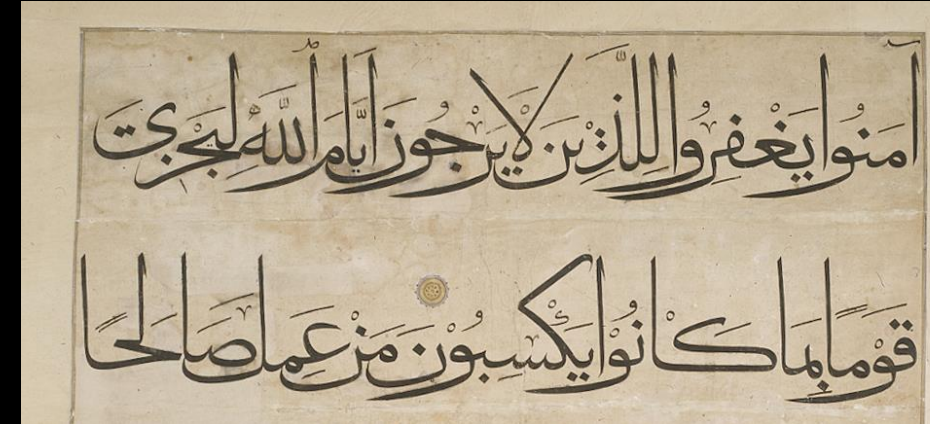 آمَنُوا يَغْفِرُوا لِلَّذِينَ لَا يَرْجُونَ أَيَّامَ اللَّهِ لِيَجْزِيَ
قَوْمًا بِمَا كَانُوْا يَكْسِبُوْنَ مَنْ عَمِلَ صَالِحًا